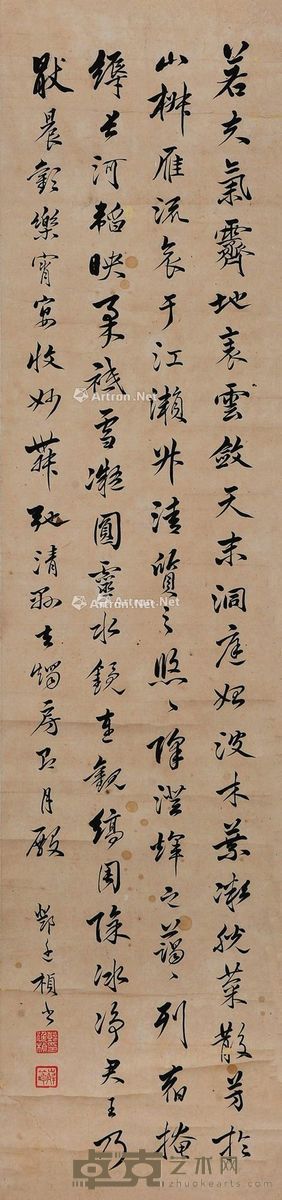 若夫氣霽地表雲斂天末洞庭始波木葉漸脫菊散芳於
山椒雁流哀于江瀨升清質之悠々降澄輝之藹々列宿掩
縟長河韜映柔祇雪凝圓靈水鏡連觀縞周除冰淨君王乃
厭晨歡樂宵宴收妙舞弛清縣去燭房即月殿
楨書
Artron.Net
Artron.Net
Artron.Net
Artron.Net
卓克艺术网
www.zhuokearts.com